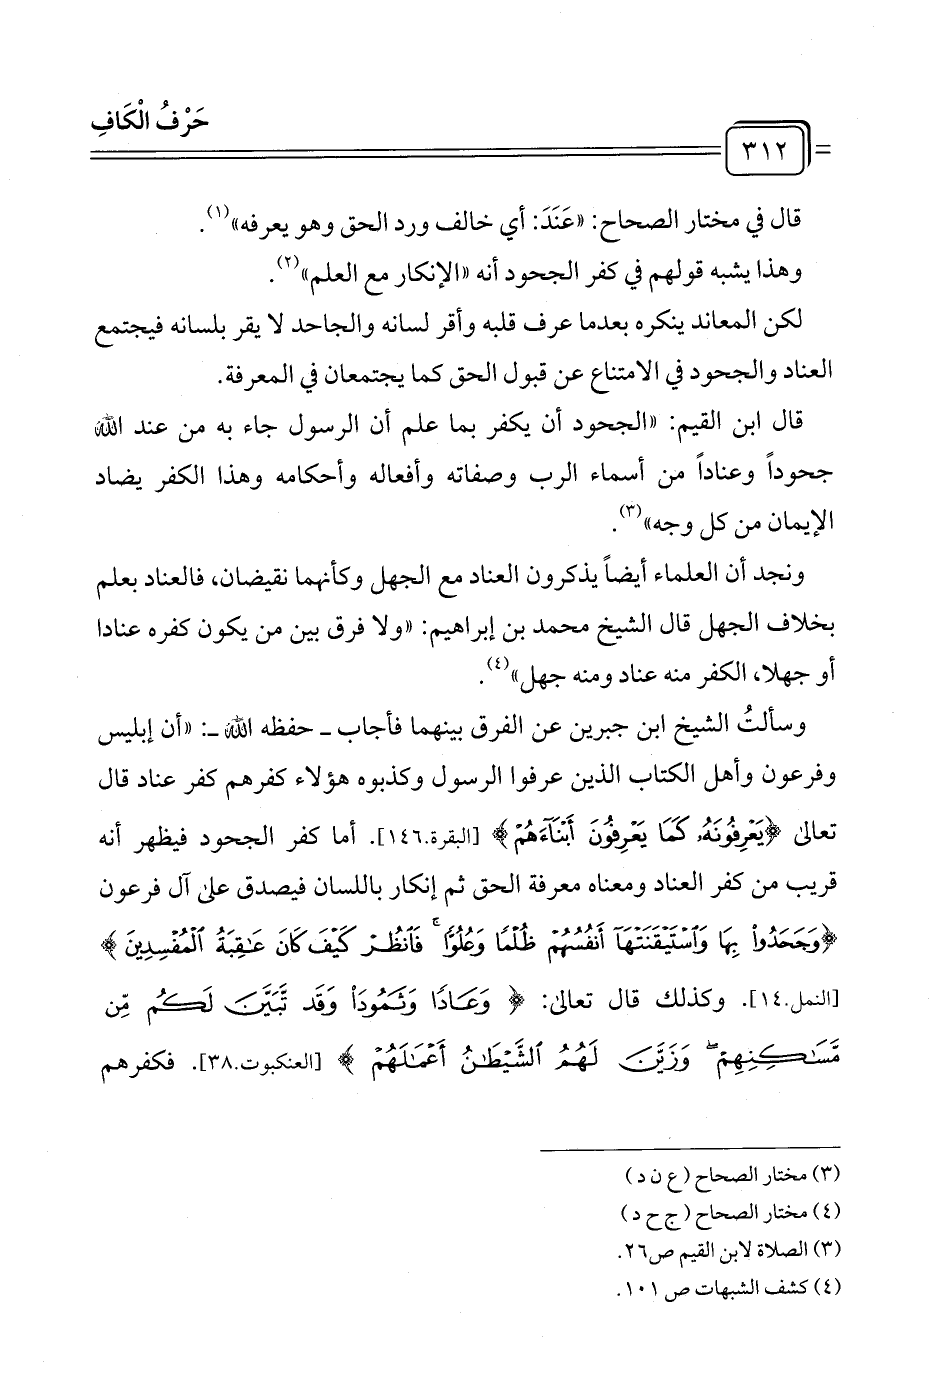 حَرْفُ الْكَافِ
٣١٢
قال في مختار الصحاح: «عَنَدَ: أي خالف ورد الحق وهو يعرفه»(١).
وهذا يشبه قولهم في كفر الجحود أنه «الإنكار مع العلم»(٢).
لكن المعاند ينكره بعدما عرف قلبه وأقر لسانه والجاحد لا يقر بلسانه فيجتمع
العناد والجحود في الامتناع عن قبول الحق كما يجتمعان في المعرفة.
قال ابن القيم: «الجحود أن يكفر بما علم أن الرسول جاء به من عند الله
جحوداً وعناداً من أسماء الرب وصفاته وأفعاله وأحكامه وهذا الكفر يضاد
الإيمان من كل وجه»(٣).
ونجد أن العلماء أيضاً يذكرون العناد مع الجهل وكأنهما نقيضان، فالعناد بعلم
بخلاف الجهل قال الشيخ محمد بن إبراهيم: «ولا فرق بين من يكون كفره عنادا
أو جهلا، الكفر منه عناد ومنه جهل»(٤).
وسألتُ الشيخ ابن جبرين عن الفرق بينهما فأجاب ـ حفظه الله ـ: «أن إبليس
وفرعون وأهل الكتاب الذين عرفوا الرسول وكذبوه هؤلاء كفرهم كفر عناد قال
تعالى ﴿يَعْرِفُونَهُۥ كَمَا يَعْرِفُونَ أَبْنَآءَهُمْ﴾ [البقرة.١٤٦]. أما كفر الجحود فيظهر أنه
قريب من كفر العناد ومعناه معرفة الحق ثم إنكار باللسان فيصدق على آل فرعون
﴿وَجَحَدُوا۟ بِهَا وَٱسْتَيْقَنَتْهَآ أَنفُسُهُمْ ظُلْمًا وَعُلُوًّا ۚ فَٱنظُرْ كَيْفَ كَانَ عَٰقِبَةُ ٱلْمُفْسِدِينَ﴾
[النمل.١٤]. وكذلك قال تعالى: ﴿وَعَادًا وَثَمُودَا۟ وَقَد تَّبَيَّنَ لَكُم مِّن
مَّسَٰكِنِهِمْ ۖ وَزَيَّنَ لَهُمُ ٱلشَّيْطَٰنُ أَعْمَٰلَهُمْ﴾ [العنكبوت.٣٨]. فكفرهم
(٣) مختار الصحاح (ع ن د)
(٤) مختار الصحاح (ج ح د)
(٣) الصلاة لابن القيم ص٢٦.
(٤) كشف الشبهات ص ١٠١.